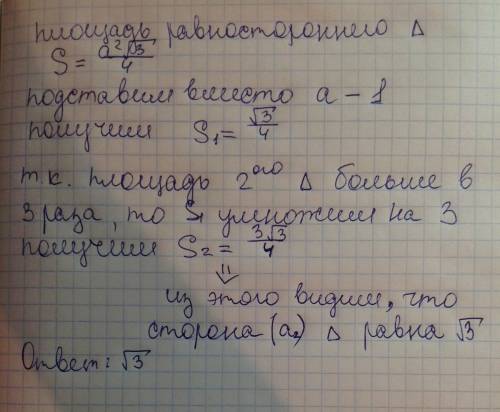 площадь равностороннего △
S = a²√3/4
подставим вместо a – 1
получим S₁ = √3/4
т.к. площадь 2ого △ больше в
3 раза, то S₁ умножим на 3
получим S₂ = 3√3/4
⇓
из этого видим, что
сторона (a₂) △ равна √3
Ответ: √3